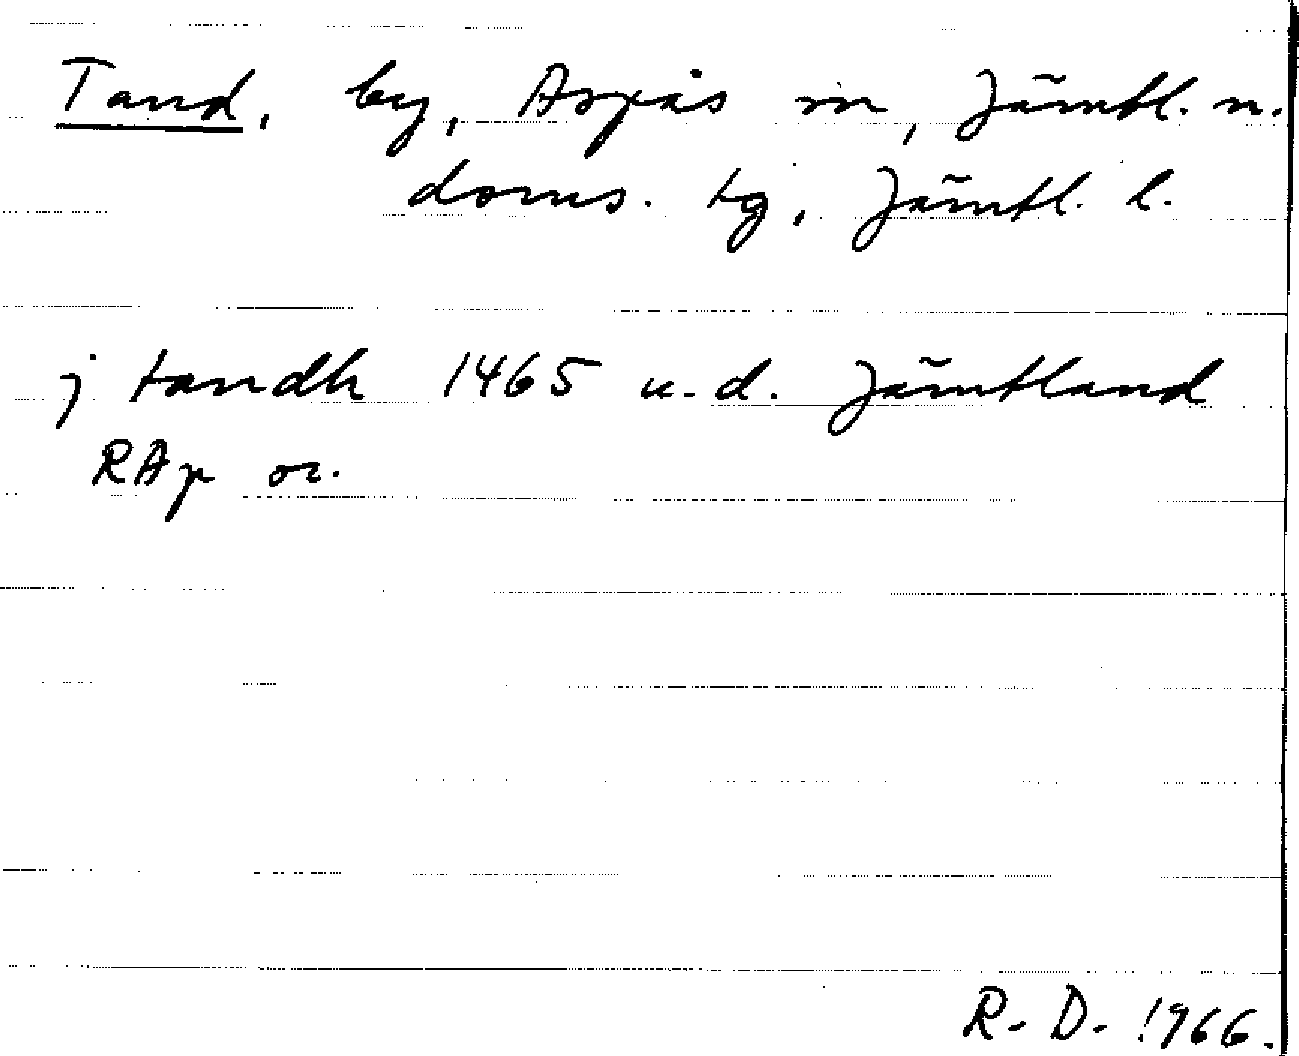 Tand, by, Aspås sn, Jämtl. n.
doms. tg, Jämtl. l.
j tandh 1465 u.d. Jämtland
RAp or.
R. D. 1966.